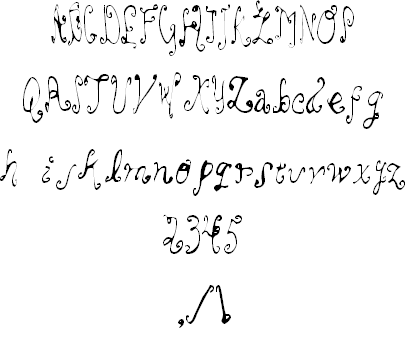 ABCDEFGHIJKLMNOP
QRSTUVWXYZabcdefg
h ijklmnopqrstuvwxyz
2345
,/\